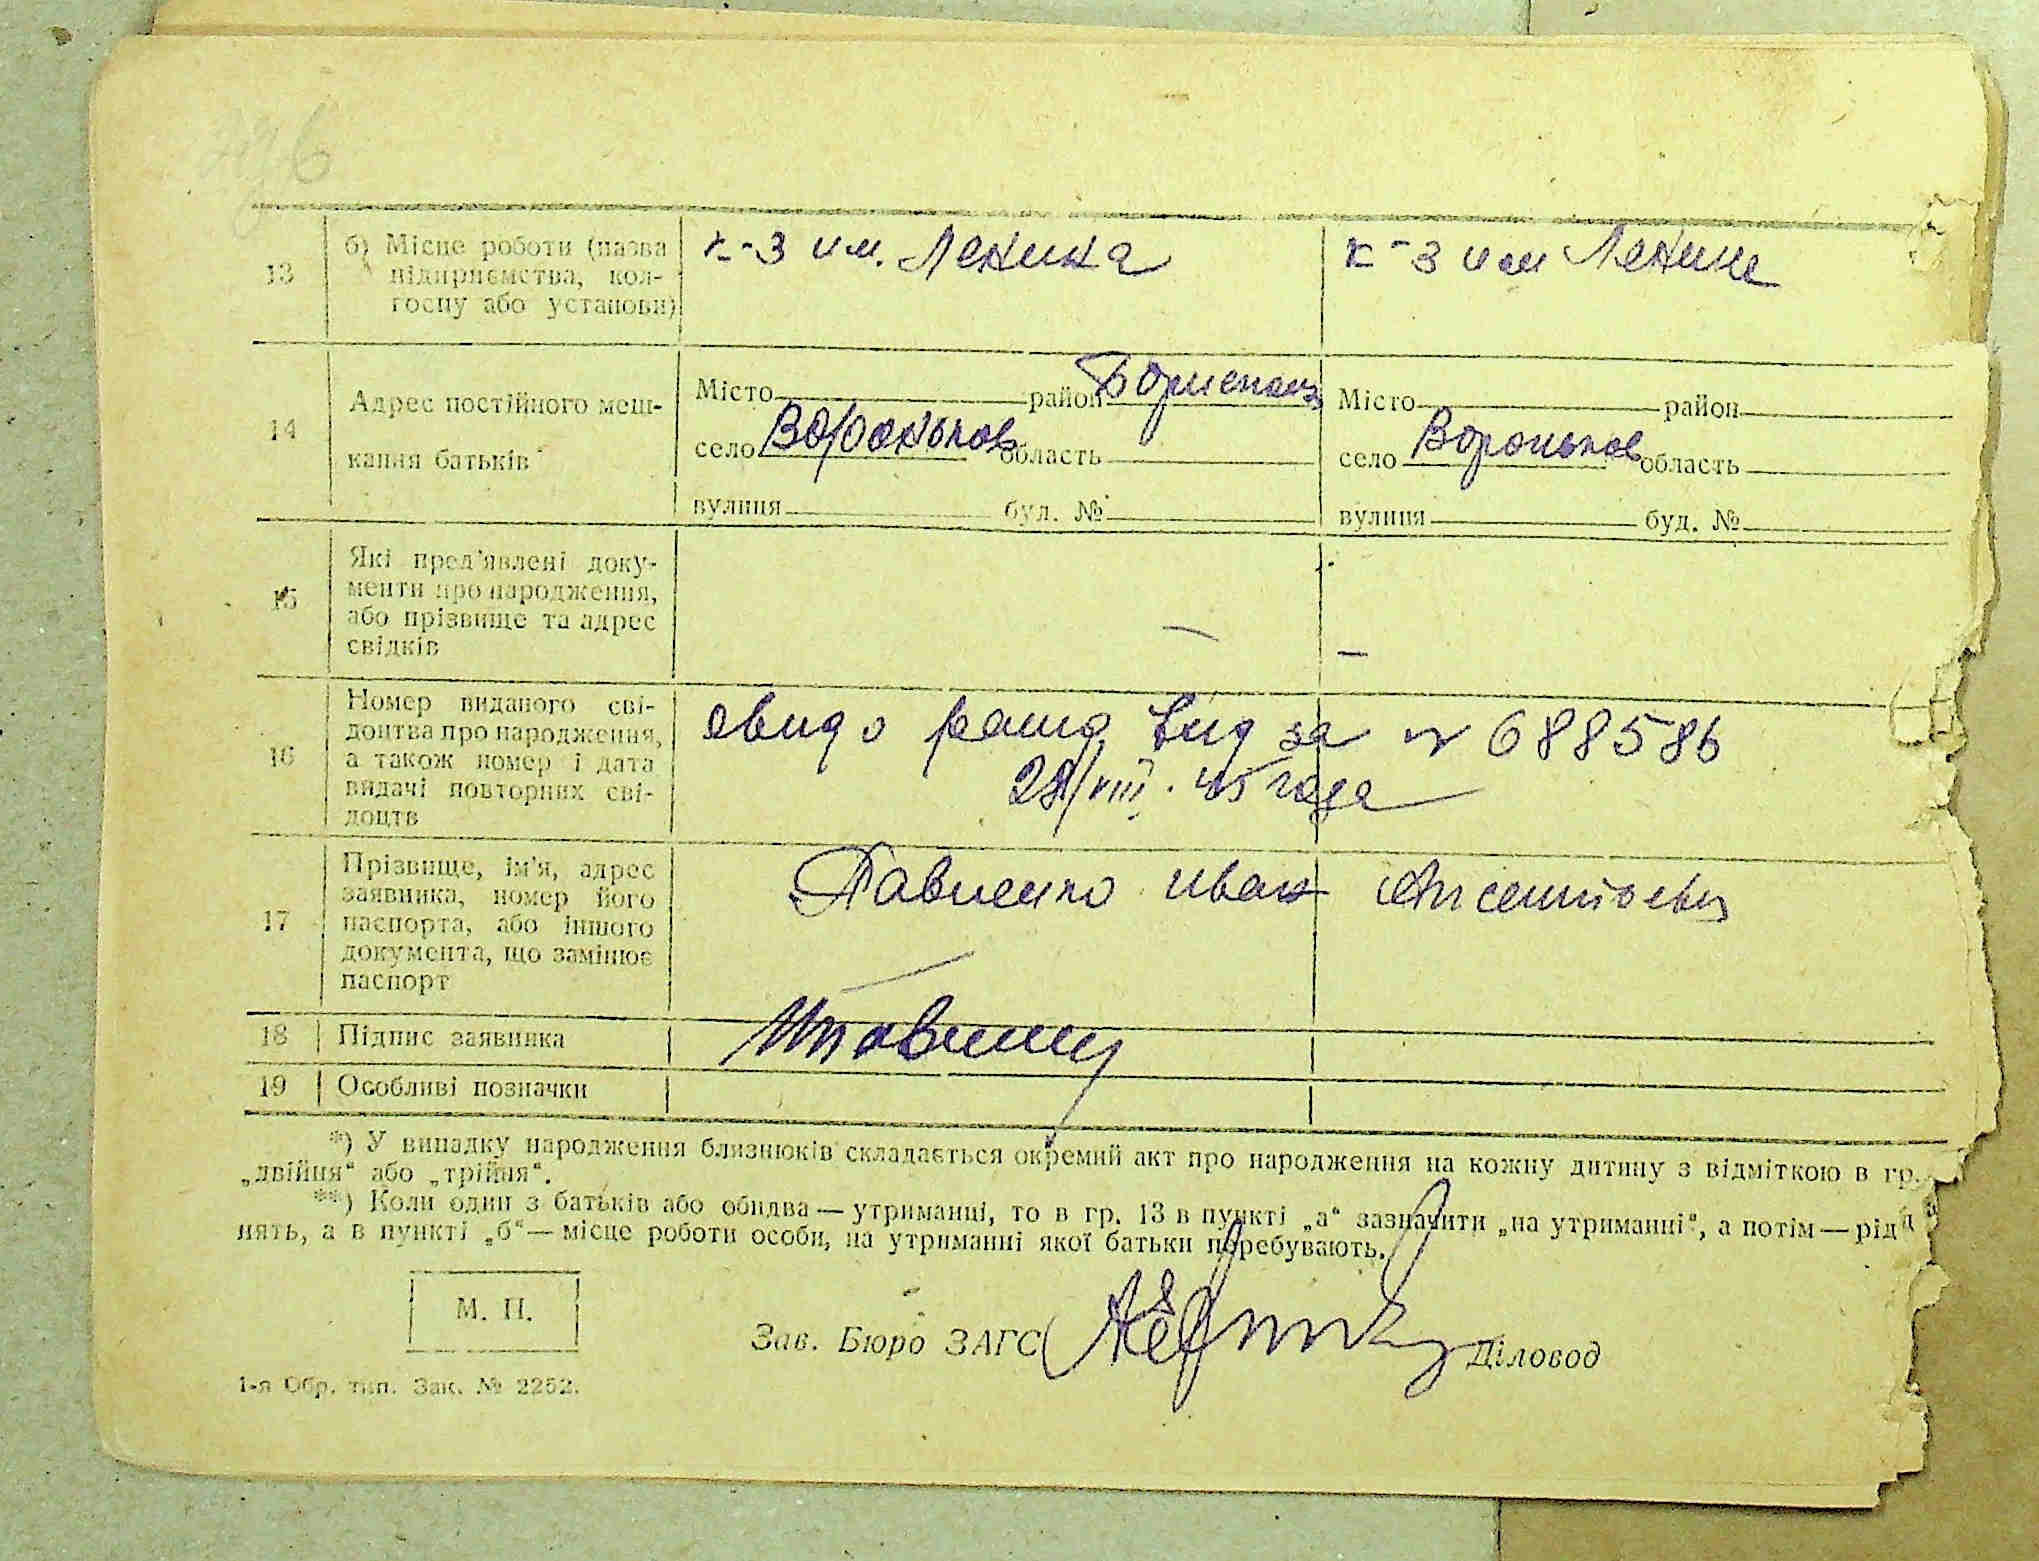 13
б) Місце роботи (назва
підприємства, кол-
госпу або установи)
к-з им. Ленина
к-з им Ленина
14
Адрес постійного меш-
кання батьків
Місто район Бориспол
село Вороньков область
вулиця буд. №
Місто район
село Вороньков область
вулиця буд. №
15
Які пред'явлені доку-
менти про народження,
або прізвище та адрес
свідків
—
—
16
Номер виданого сві-
доцтва про народження,
а також номер і дата
видачі повторних сві-
доцтв
за № 688586
28/VIII. 45 года
17
Прізвище, ім'я, адрес
заявника, номер його
паспорта, або іншого
документа, що замінює
паспорт
Павленко Иван
18 Підпис заявника
19 Особливі позначки
*) У випадку народження близнюків складається окремий акт про народження на кожну дитину з відміткою в гр.
„двійня“ або „трійня“.
**) Коли один з батьків або обидва — утриманці, то в гр. 13 в пункті „а“ зазначити „на утриманні“, а потім — рід
нять, а в пункті „б“ — місце роботи особи, на утриманні якої батьки перебувають.
М. П.
Зав. Бюро ЗАГС Діловод
1-я Обр. тип. Зак. № 2252.